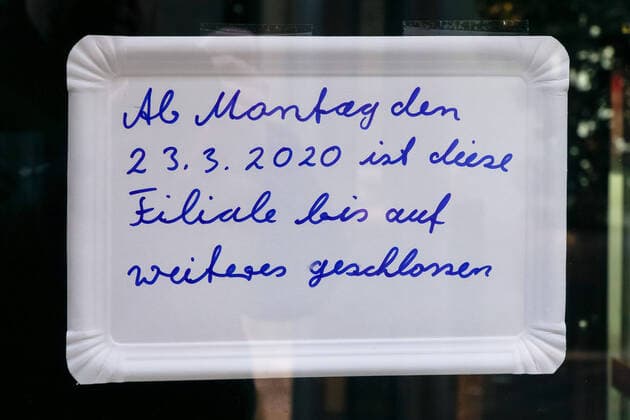 Ab Montag den
23.3.2020 ist diese
Filiale bis auf
weiteres geschlossen